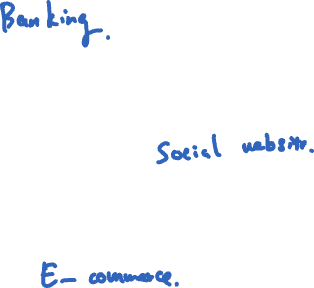 Banking.
Social website.
E- commerce.